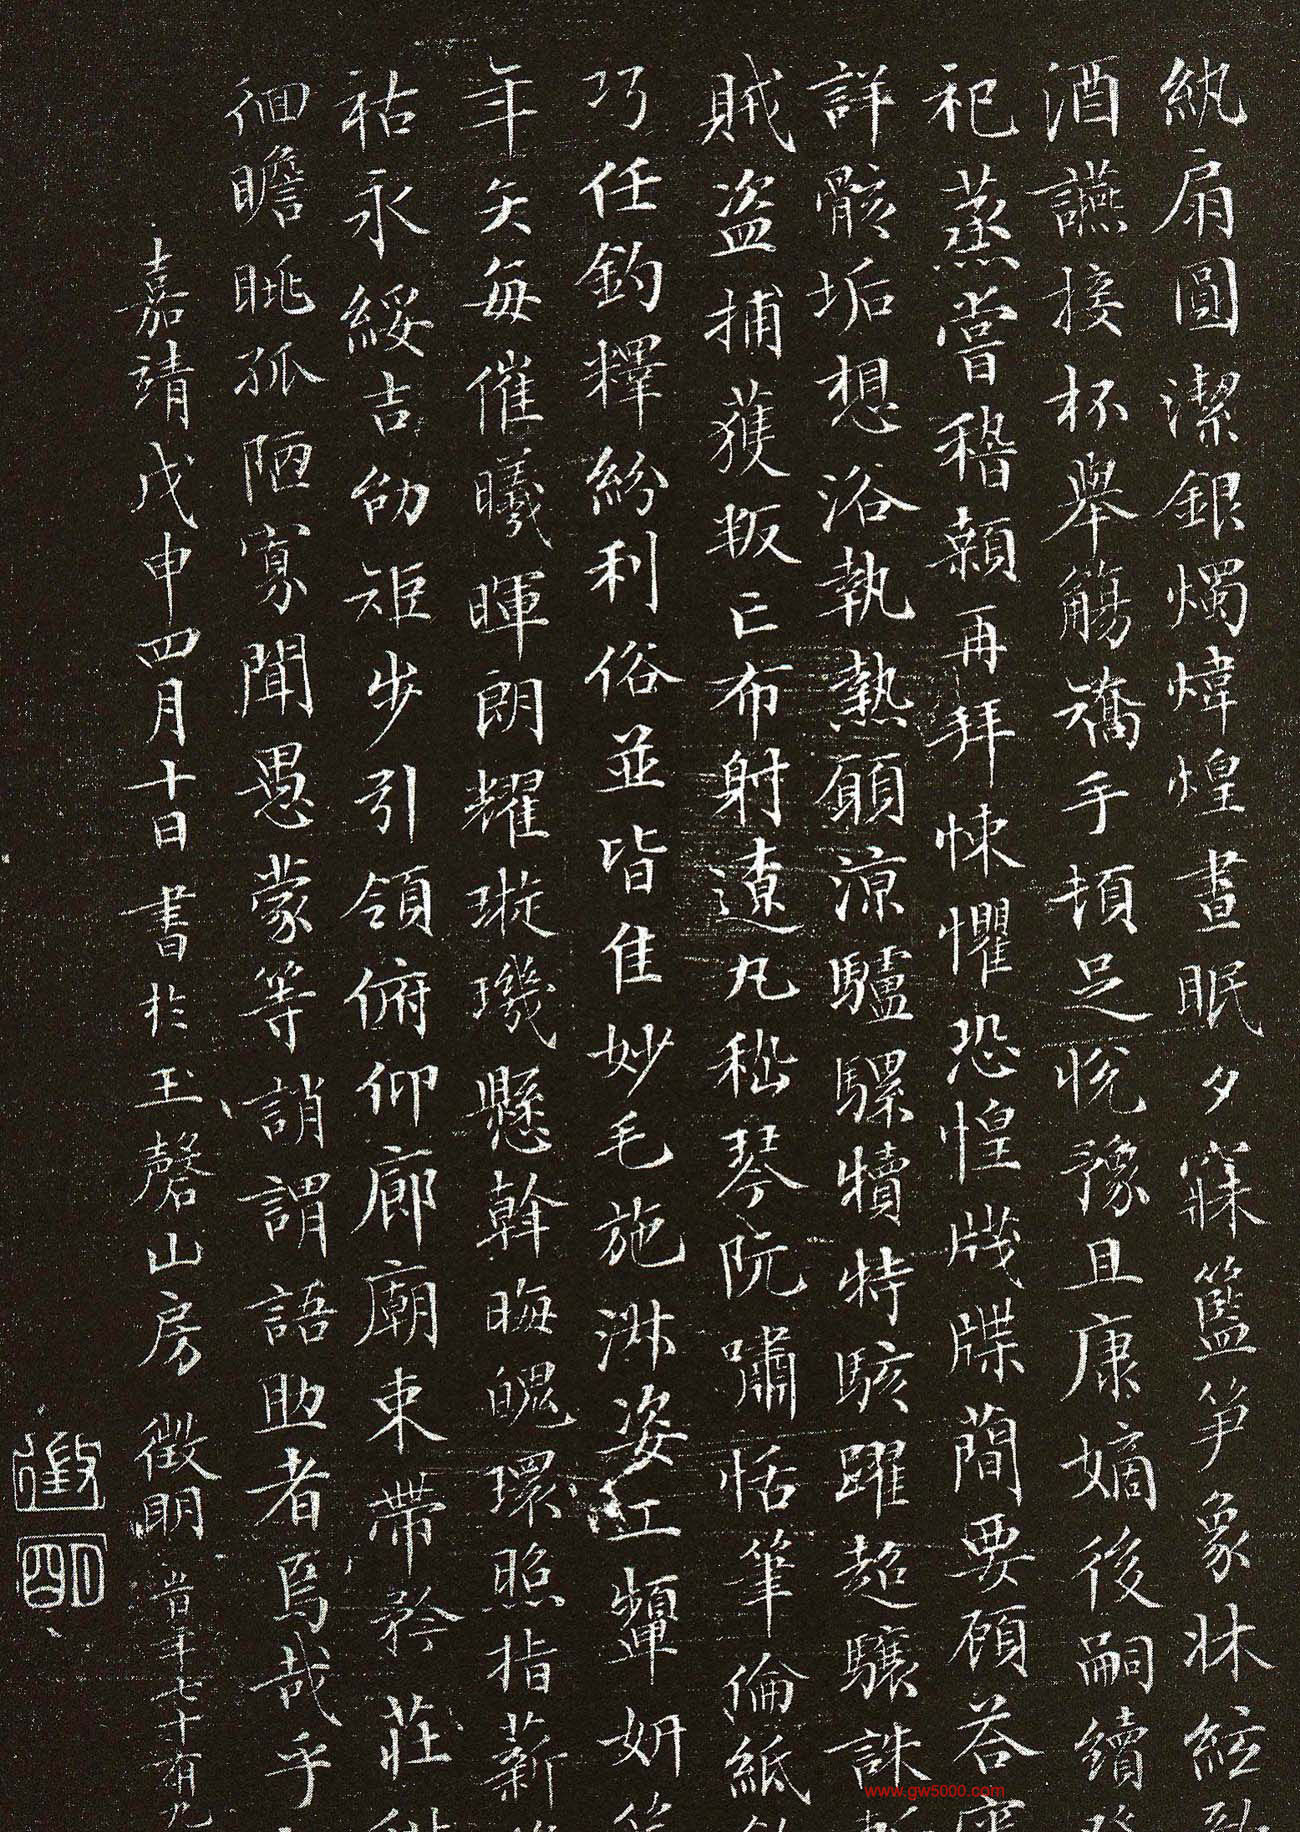 紈扇圓潔銀燭煒煌晝眠夕寐籃笋象牀絃歌
酒讌接杯舉觴矯手頓足悅豫且康嫡後嗣續
祀蒸嘗稽顙再拜悚懼恐惶牋牒蕳要顧荅審
詳骸垢想浴執熱願涼驢騾犢特駭躍超驤誅斬
賊盜捕獲叛亡布射遼丸嵇琴阮嘯恬筆倫紙
巧任鈞釋紛利俗並皆佳妙毛施淑姿工顰妍
年矢每催曦暉朗耀璇璣懸斡晦魄環照指薪
祜永綏吉劭矩步引領俯仰廊廟束帶矜莊
徊瞻眺孤陋寡聞愚蒙等誚謂語助者焉哉乎
嘉靖戊申四月十日書於玉磬山房 徵明 昔年七十有九
徵
明
www.gw5000.com